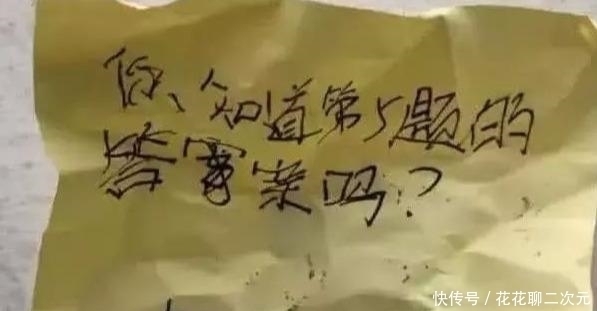 你、知道第5题的
答案案吗?
快传号/花花聊二次元